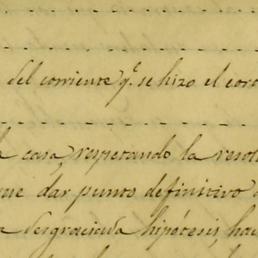 del corriente q.e se hizo el
casa, respetando la
que dar punto definitivo
desgraciada hipótesis,